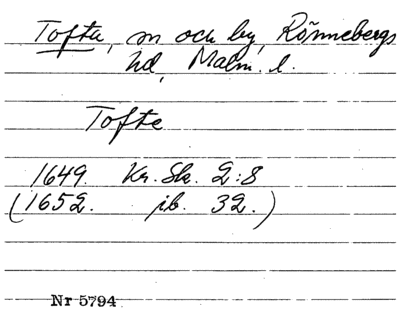 Tofta, m och by, Rönnebergs
hd, Malm. l.
Tofte
1649. Kr. Sk. 2:8
(1652. ib. 32.)
Nr 5794